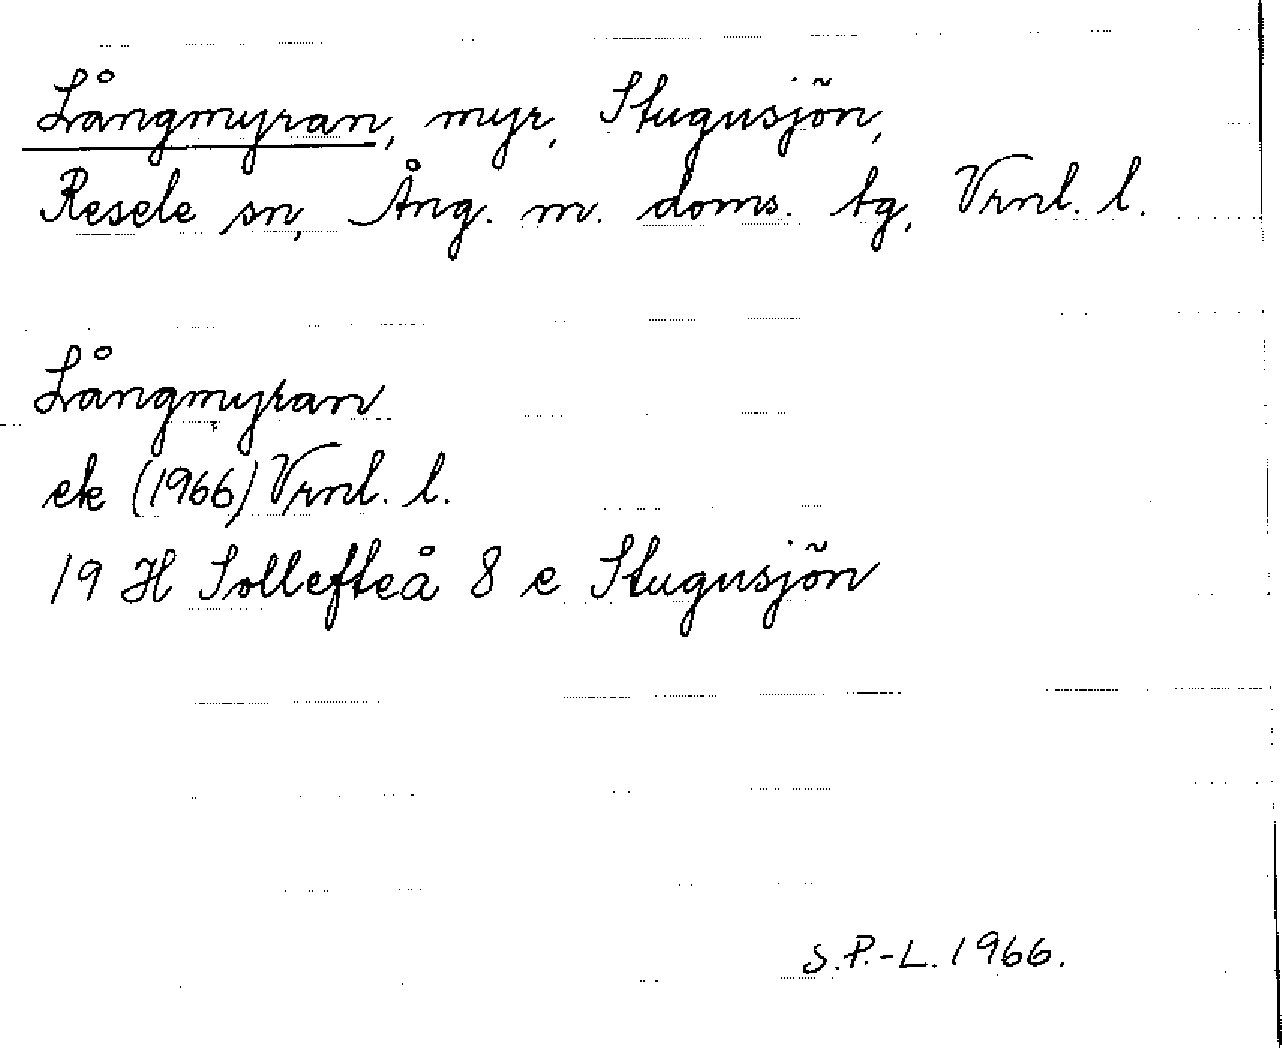 Långmyran, myr, Stugusjön,
Resele sn, Ång. m. doms. tg, Vrnl. l.
Långmyran
ek (1966) Vrnl. l.
19 H Sollefteå 8 e Stugusjön
S.P.-L. 1966.